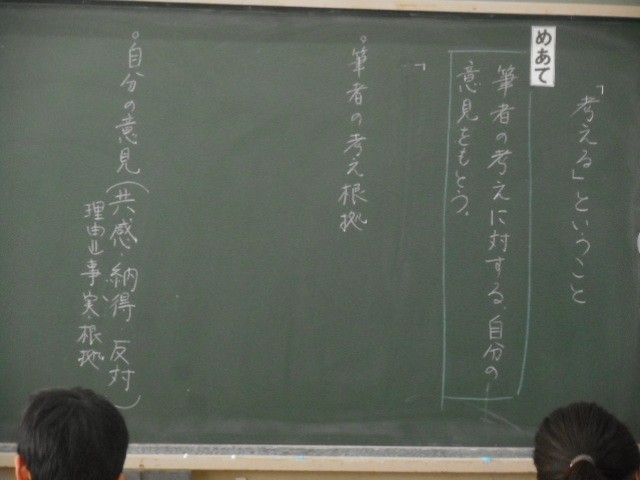 「考える」ということ
めあて
筆者の考えに対する、自分の
意見をもとう。
「
○筆者の考え根拠
○自分の意見(共感・納得・反対)
理由⇒事実・根拠